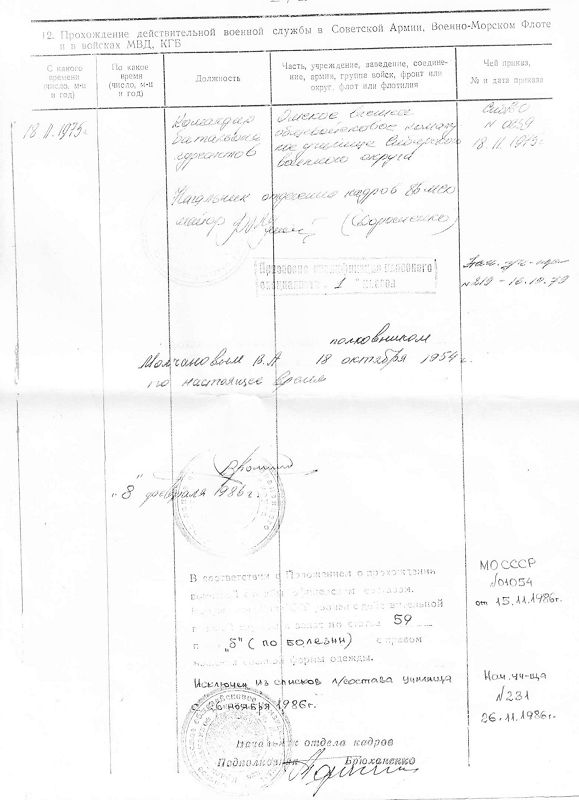 12. Прохождение действительной военной службы в Советской Армии, Военно-Морском Флоте
и в войсках МВД, КГБ
С какого
времени
(число, м-ц
и год)
По какое
время
(число, м-ц
и год)
Должность
Часть, учреждение, заведение, соедине-
ние, армия, группа войск, фронт или
округ, флот или флотилия
Чей приказ,
№ и дата приказа
18.11.1975г.
Командир
батальона
курсантов
Омское высшее
общевойсковое команд
ное училище Сибирского
военного округа
СибВО
N 0659
18.11.1975г
Начальник отделения кадров
майор
Присвоена квалификация
1
N 219 - 16.10.79
полковником
Молчановым В.А 18 октября 1954 г.
по настоящее время
"8" февраля 1986 г.
В соответствии с Положением о прохождении
59
п „б" (по болезни) с правом
ношения военной формы одежды.
МО СССР
N 01054
от 15.11.1986г.
Исключен из списков л/состава училища
с 26 ноября 1986г.
Нач. уч-ща
N 231
26.11.1986г.
Начальник отдела кадров
Подполковник Брюханенко